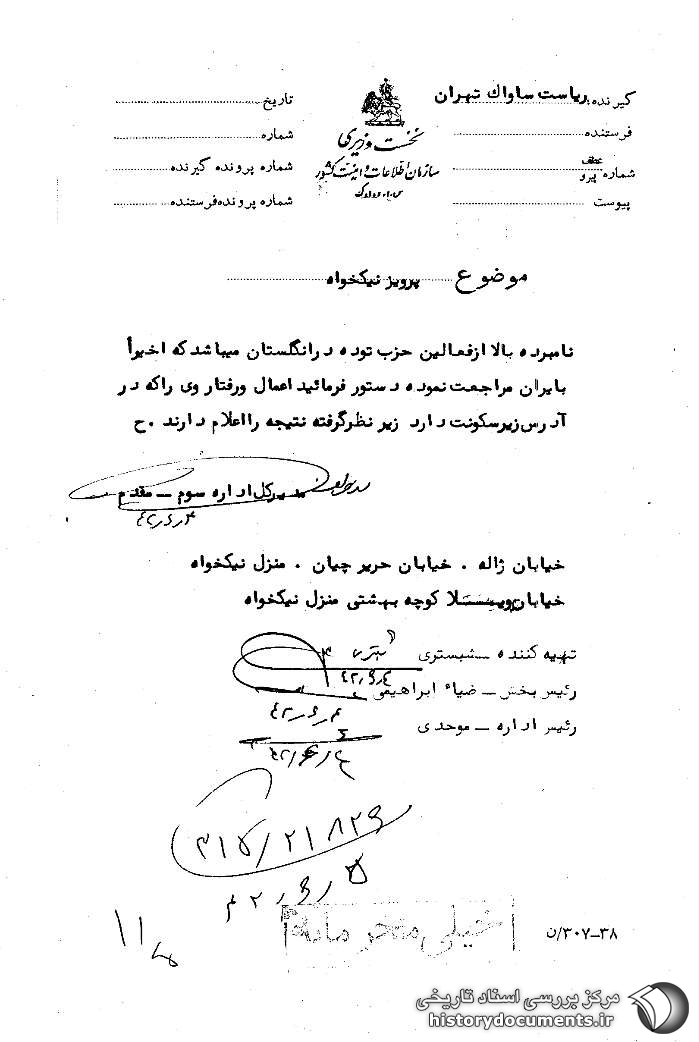 گیرنده: ریاست ساواک تهران
فرستنده
شماره عطف پیرو
پیوست
نخست وزیری
سازمان اطلاعات و امنیت کشور
س.ا.و.ا.ک
تاریخ
شماره
شماره پرونده گیرنده
شماره پرونده فرستنده
موضوع پرویز نیکخواه
نامبرده بالا از فعالین حزب توده در انگلستان میباشد که اخیراً
بایران مراجعت نموده دستور فرمائید اعمال ورفتار وی راکه در
آدرس زیر سکونت دارد زیر نظر گرفته نتیجه را اعلام دارند .ح
مدیرکل اداره سوم – مقدم
۴۲٫۶٫۴
خیابان ژاله . خیابان حریر چیان . منزل نیکخواه
خیابان کوچه بهشتی منزل نیکخواه
تهیه کننده – شبستری
۴۲٫۶٫۴
رئیس بخش – ضیاء ابراهیمی
۴۲٫۶٫۴
رئیس اداره – موحدی
۴۲٫۶٫۴
۳۱۵/۲۱۸۲۶
خیلی محرمانه
۳۰۷-۳۸/ن
مرکز بررسی اسناد تاریخی
historydocuments.ir